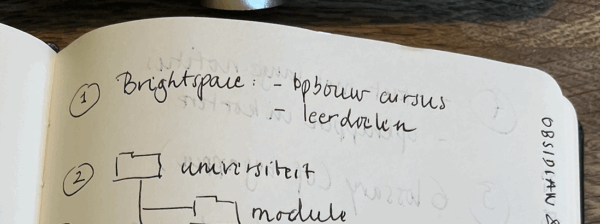 ① Brightspace: - opbouw cursus
- leerdoelen
② universiteit
module
OBSIDIAN &